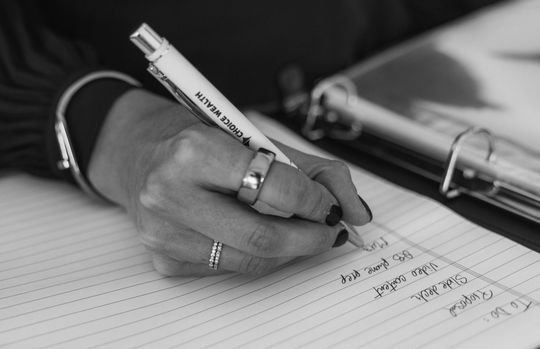 CHOICE WEALTH
To Do:
Proposal
Slide deck
Video content
BB phone prep